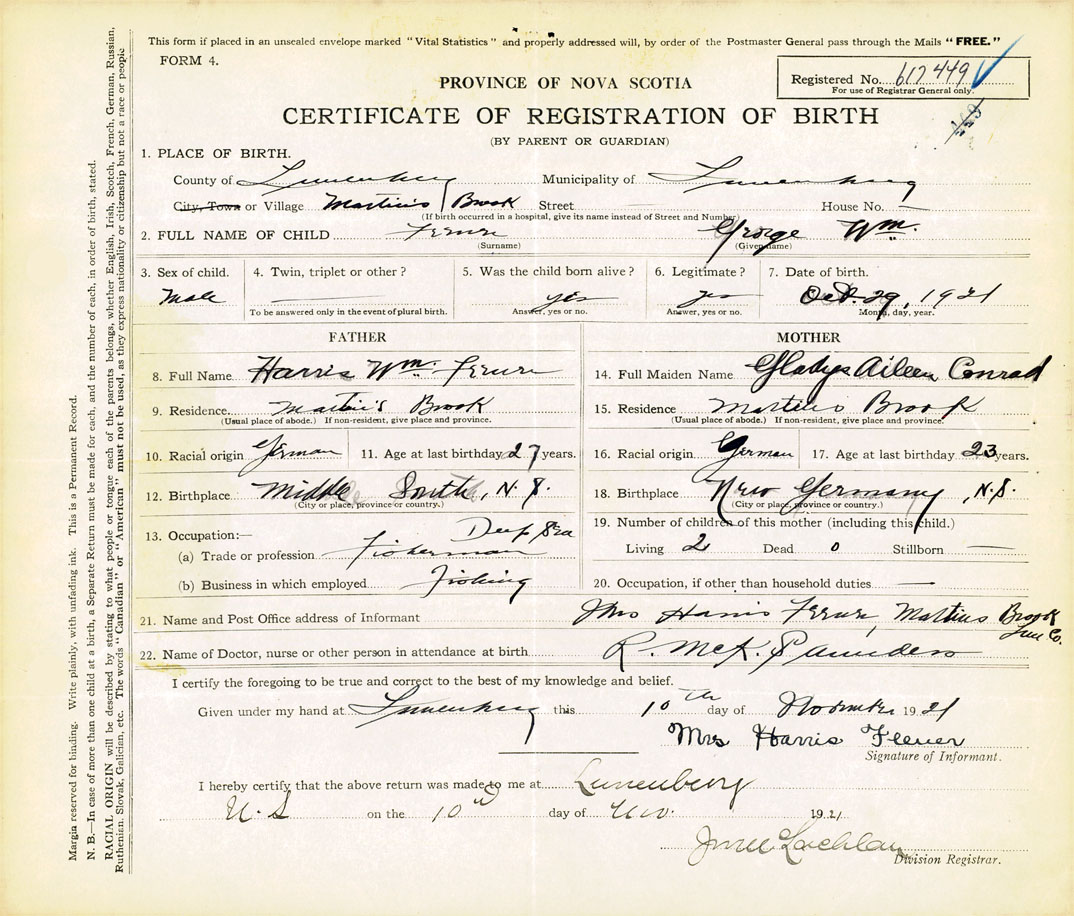 This form if placed in an unsealed envelope marked "Vital Statistics" and properly addressed will, by order of the Postmaster General pass through the Mails "FREE."
FORM 4.
Registered No. 617449
For use of Registrar General only.
PROVINCE OF NOVA SCOTIA
CERTIFICATE OF REGISTRATION OF BIRTH
(BY PARENT OR GUARDIAN)
1. PLACE OF BIRTH.
County of Lunenburg Municipality of Lunenburg
City, Town or Village Martin's Brook Street — House No. —
(If birth occurred in a hospital, give its name instead of Street and Number)
2. FULL NAME OF CHILD George Wm.
(Surname) (Given name)
3. Sex of child. 4. Twin, triplet or other? 5. Was the child born alive? 6. Legitimate? 7. Date of birth.
Male — yes yes Oct. 29, 1921
To be answered only in the event of plural birth. Answer, yes or no. Answer, yes or no. Month, day, year.
FATHER
8. Full Name Harris Wm.
9. Residence. Martin's Brook
(Usual place of abode.) If non-resident, give place and province.
10. Racial origin German 11. Age at last birthday 27 years.
12. Birthplace Middle South, N.S.
(City or place, province or country.)
13. Occupation:— Deep Sea
(a) Trade or profession Fisherman
(b) Business in which employed Fishing
MOTHER
14. Full Maiden Name Gladys Aileen Conrad
15. Residence Martins Brook
(Usual place of abode.) If non-resident, give place and province.
16. Racial origin German 17. Age at last birthday 23 years.
18. Birthplace New Germany, N.S.
(City or place, province or country.)
19. Number of children of this mother (including this child.)
Living 2 Dead 0 Stillborn —
20. Occupation, if other than household duties —
21. Name and Post Office address of Informant Mrs Harris Martins Brook
Lun Co.
22. Name of Doctor, nurse or other person in attendance at birth R. McK. Saunders
I certify the foregoing to be true and correct to the best of my knowledge and belief.
Given under my hand at Lunenburg this 10th day of November 1921
Mrs Harris
Signature of Informant.
I hereby certify that the above return was made to me at Lunenburg
N.S. on the 10th day of Nov. 1921
Division Registrar.
Margin reserved for binding. Write plainly, with unfading ink. This is a Permanent Record.
N. B.—In case of more than one child at a birth, a Separate Return must be made for each, and the number of each, in order of birth, stated.
RACIAL ORIGIN will be described by stating to what people or tongue each of the parents belongs, whether English, Irish, Scotch, French, German, Russian,
Ruthenian, Slovak, Galician, etc. The words "Canadian" or "American" must not be used, as they express nationality or citizenship but not a race or people